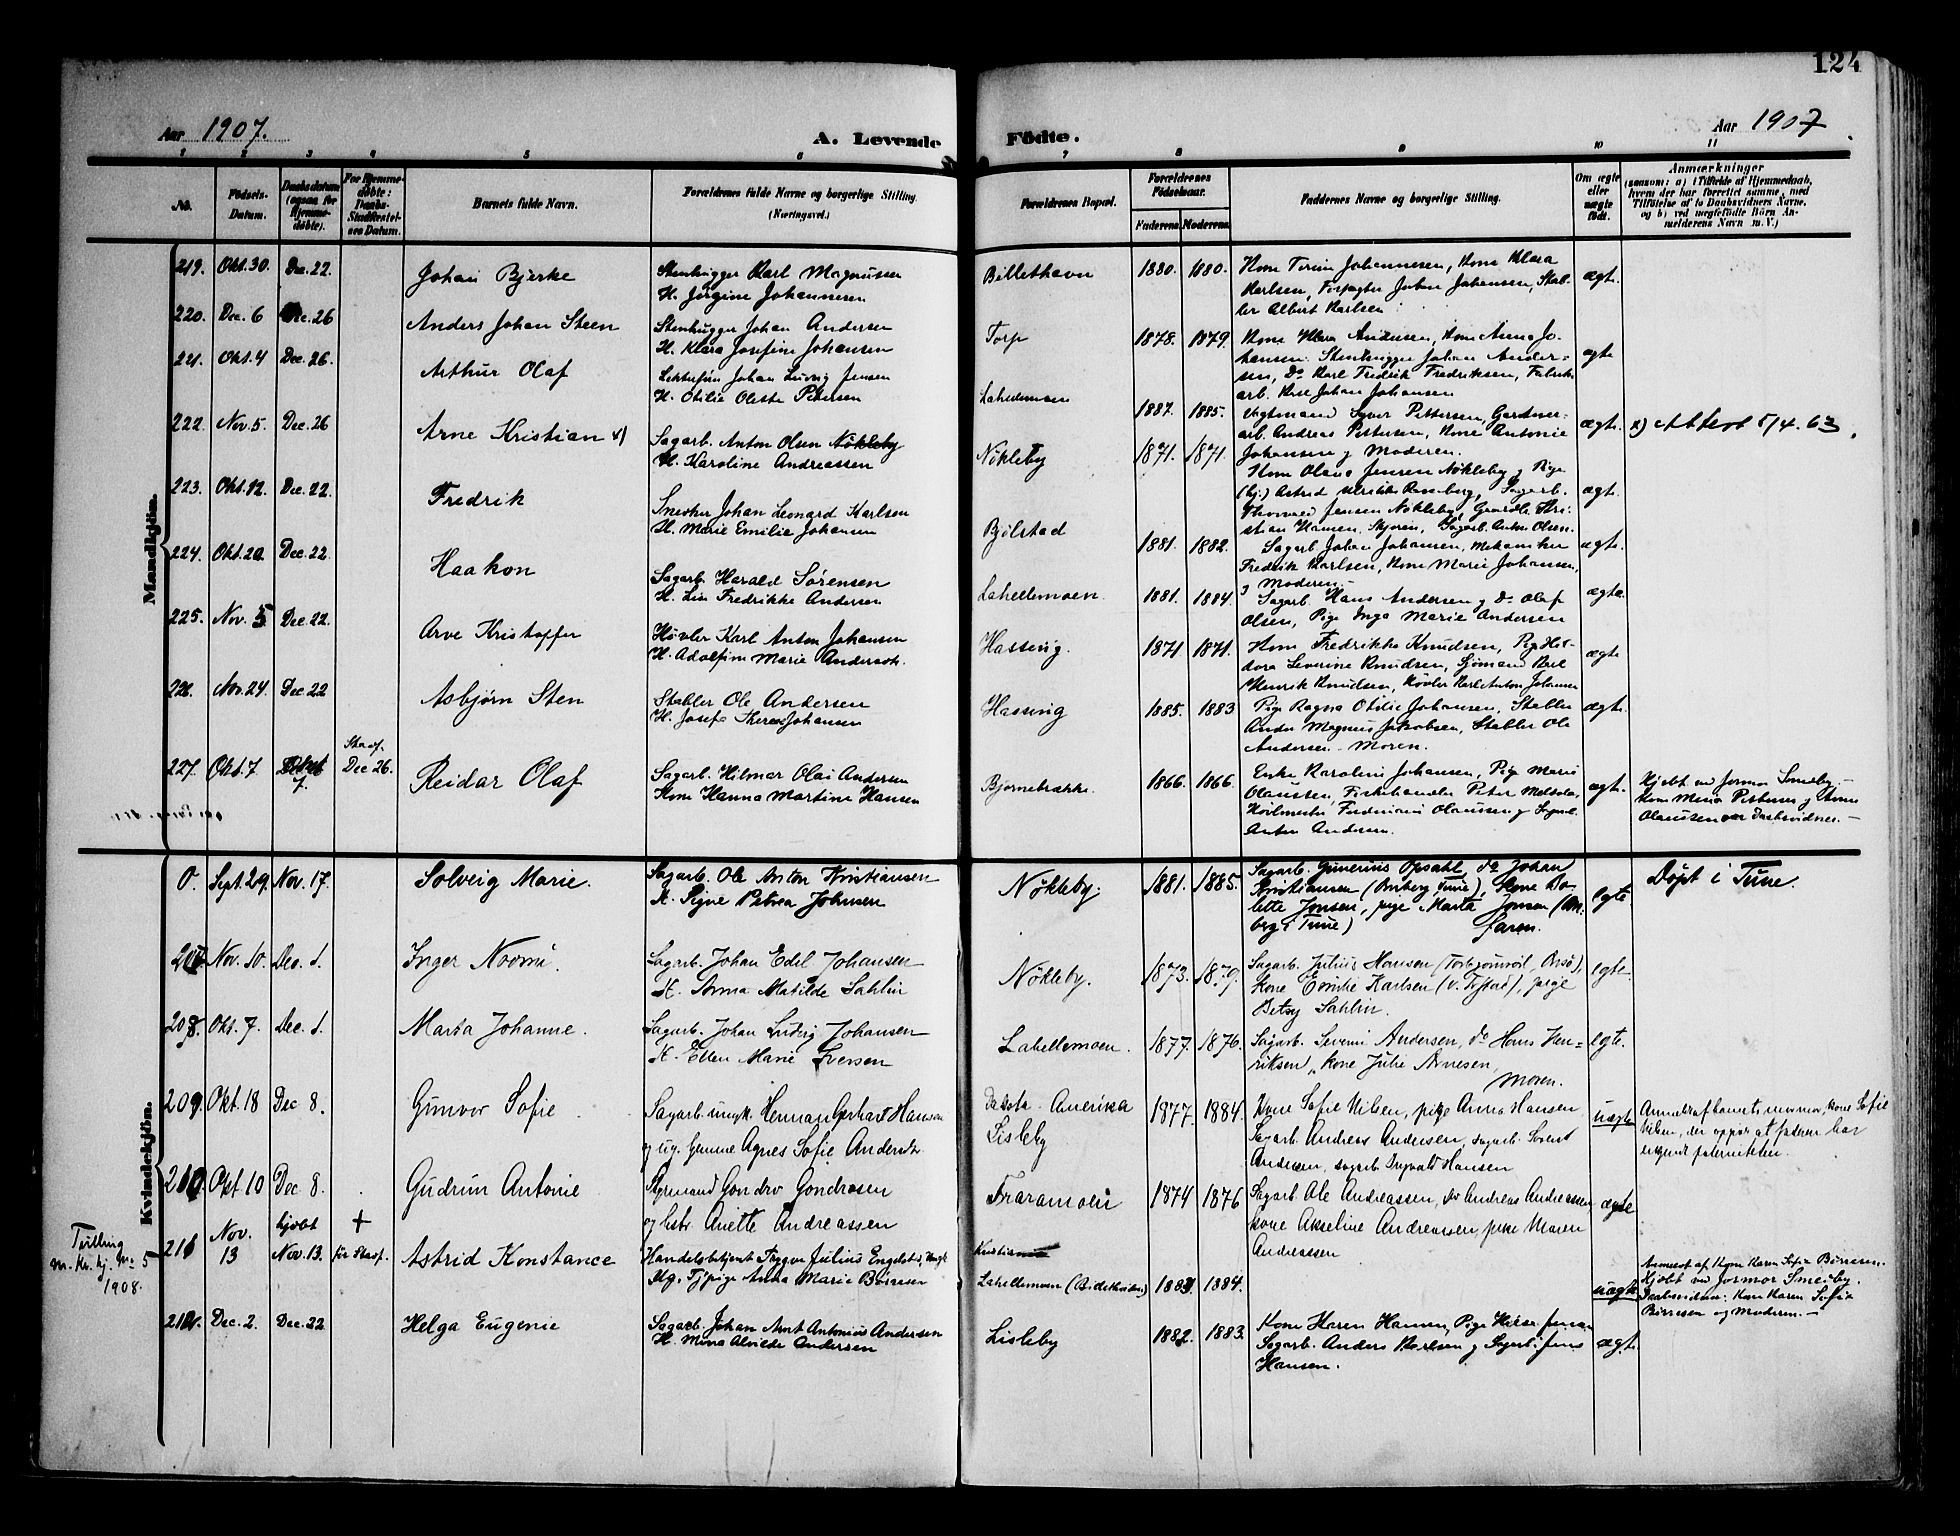 124
Aar 1907.
A. Levende
Födte.
Aar 1907
1 2 3 4 5 6 7 8 9 10 11
No.
Födsels-
Datum.
Daabsdatum
(ogsaa for
Hjemme-
døbte).
For Hjemme-
døbte:
Daabs-
Stadfæstel-
ses Datum.
Barnets fulde Navn.
Forældrenes fulde Navne og borgerlige Stilling.
(Næringsvei.)
Forældrenes Bopæl.
Forældrenes
Födselsaar.
Faderens Moderens
Faddernes Navne og borgerlige Stilling.
Om ægte
eller
uægte
födt.
Anmærkninger
(saasom: a) i Tilfælde af Hjemmedaab,
hvem der har forrettet samme, med
Tilföielse af to Daabsvidners Navne,
og b) ved uægtefödte Börn An-
melderens Navn m. V.)
Mandkjön.
219. Okt. 30. Dec. 22. Johan Bjerke
Stenhugger Karl Magnussen
H. Jørgine Johannesen
Billethavn 1880. 1880.
Kone Johannesen, Kone Klara
Karlsen, Forpagter Johan Johansen, Stab-
ler Albert Karlsen
ægte.
220. Dec. 6 Dec. 26 Anders Johan Steen
Stenhugger Johan Andersen
H. Klara Josefine Johansen
Torp 1878. 1879.
Kone Klara Andersen, Kone Anna Jo-
hansen. Stenhugger Johan Ander-
sen, Do Karl Fredrik Fredriksen, Fabrik-
arb. Johan Johansen
ægte
221. Okt. 4 Dec. 26. Arthur Olaf
Johan Ludvig Jensen
H. Otilie Oleste Petersen
Lahellemoen 1887. 1885.
Vægtmand Syver Pettersen, Gartner-
arb. Andreas Pettersen, Kone Antonie
Johansen og Moderen.
ægte.
222. Nov. 5. Dec. 26 Arne Kristian x)
Sagarb. Anton Olsen Nökleby
H. Karoline Andreassen
Nökleby 1871. 1871.
Kone Olava Jensen Nökleby og Pige
(hj.) Astrid Rosenberg, Sagarb.
Thorvald Jensen Nökleby, Kri-
stian Hansen, Sagarb. Anton Olsen.
ægte.
x) Attest 5/4. 63.
223. Okt. 12. Dec. 22. Fredrik
Snedker Johan Leonard Karlsen
H. Marie Emilie Johansen
Bjölstad 1881. 1882.
Sagarb. Johan Johansen, Mekaniker
Fredrik Karlsen, Kone Marie Johansen,
og Moderen.
ægte.
224. Okt. 20 Dec. 22. Haakon
Sagarb. Harald Sörensen
H. Fredrikke Andersen
Lahellemoen. 1881. 1884.
Sagarb. Hans Andersen og Do Olaf
Olsen, Pige Inga Marie Andersen
ægte.
225. Nov. 5 Dec. 22. Arve Kristoffer
Høvler Karl Anton Johansen
H. Adolfine Marie Andersen.
Hassing. 1871 1871.
Kone Fredrikke Knudsen, Pige Hel-
dora Severine Knudsen, Sjömand Karl
Henrik Knudsen, Høvler Karl Anton Johansen
ægte
226. Nov. 24. Dec 22 Asbjørn Sten
Stabler Ole Andersen
H. Josefa Therese Johansen
Hassing 1885. 1883
Pige Ragna Otilie Johansen, Stabler
Magnus Jakobsen, Stabler Ole
Andersen. Moren.
ægte.
227. Okt. 7 7. Stadf.
Dec 26. Reidar Olaf
Sagarb. Hilmar Olai Andersen
Kone Hanna Martine Hansen
Bjørnebække. 1866. 1866.
Enke Karoline Johansen, Pige Marie
Olaussen, Fiskehandler Peter
Høvlmester Ferdinand Olaussen og Sagarb.
Anton Andersen.
ægte.
Hjdbt. ved Jormor Smeby.
Kone Mina Pettersen og Anna
Olaussen var Daabsvidner.
Kvindekjön.
0. Sept. 29. Nov. 17. Solveig Marie.
Sagarb. Ole Anton Kristiansen
K. Signe Petrea Johnsen
Nökleby. 1881. 1885.
Sagarb. Gunerius Opsahl, do Johan
Kristiansen (Omberg Tune), kone Do-
lette Jonsen, pige Marta Jonsen (Om-
berg i Tune) faren.
egte.
Döpt i Tune.
207 Nov. 10. Dec. 1. Inger Noomi.
Sagarb. Johan Edel Johansen
K. Anna Matilde Sahlin
Nökleby. 1873. 1879.
Sagarb. Julius Hansen
kone Karlsen pige
Betsy Sahlin.
egte.
208. Okt. 7. Dec. 1. Marta Johanne.
Sagarb. Johan Ludvig Johansen
K. Ellen Marie Iversen
Lahellemoen. 1877. 1876.
Sagarb. Severin Andersen, do Hans Hen-
riksen, kone Julie Arnesen,
moren.
egte.
209. Okt. 18 Dec 8. Gunvor Sofie
Sagarb. ungk. Herman Gerhart Hansen
og ug. Agnes Sofie Andersen.
Amerika
Lisleby 1877. 1884.
Kone Sofie Nilsen, pige Anna Hansen
Sagarb. Andreas Andersen, sagarb.
Andersen, sagarb. Hansen
uægte
kone Sofie
Nilsen, der at faderen har
210. Okt. 10 Dec 8. Gudrun Antonie
Styrmand Gondro Gondrosen
og hstr Anette Andreassen
Traramoen 1874 1876
Sagarb. Ole Andreassen, do Andreas Andreassen
kone Akseline Andreassen, pike Maren
Andreassen
ægte
Tvilling
m. Kv. kj. No 5
1908.
211 Nov.
13 hjdbt
Nov. 13. +
før Stadf. Astrid Konstance
Handelsbetjent Trygve Julius Engelstad, Ungk.
Ug. Pige Anna Marie Börresen
Kristiania
Lahellemoen 1884.
uægte
Anmeldt af Kone Karen Sofie Börresen.
Hjdbt ved Jormor Smeby.
Daabsvidner: Kone Karen Sofie
Börresen og Moderen.
212. Dec. 2. Dec. 22 Helga Eugenie
Sagarb. Johan Arnt Antonius Andersen
H. Mina Alvilde Andersen
Lisleby 1882. 1883.
Kone Karen Hansen, Pige
Sagarb. Anders Karlsen og Sagarb. Jens
Hansen.
ægte